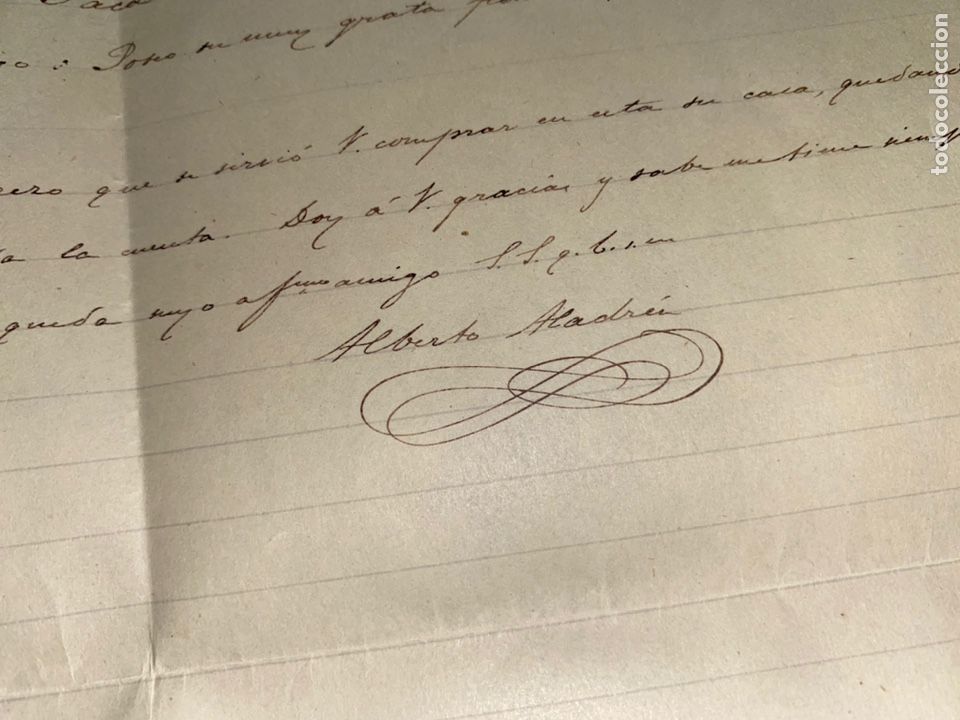 Poseo su muy grata
que se sirvió V. comprar en esta su casa, quedando
la cuenta. Doy á V. gracias y sabe me tiene siemp
queda suyo afmo amigo S.S.q.b.s.m
Alberto Aladrén
todocoleccion